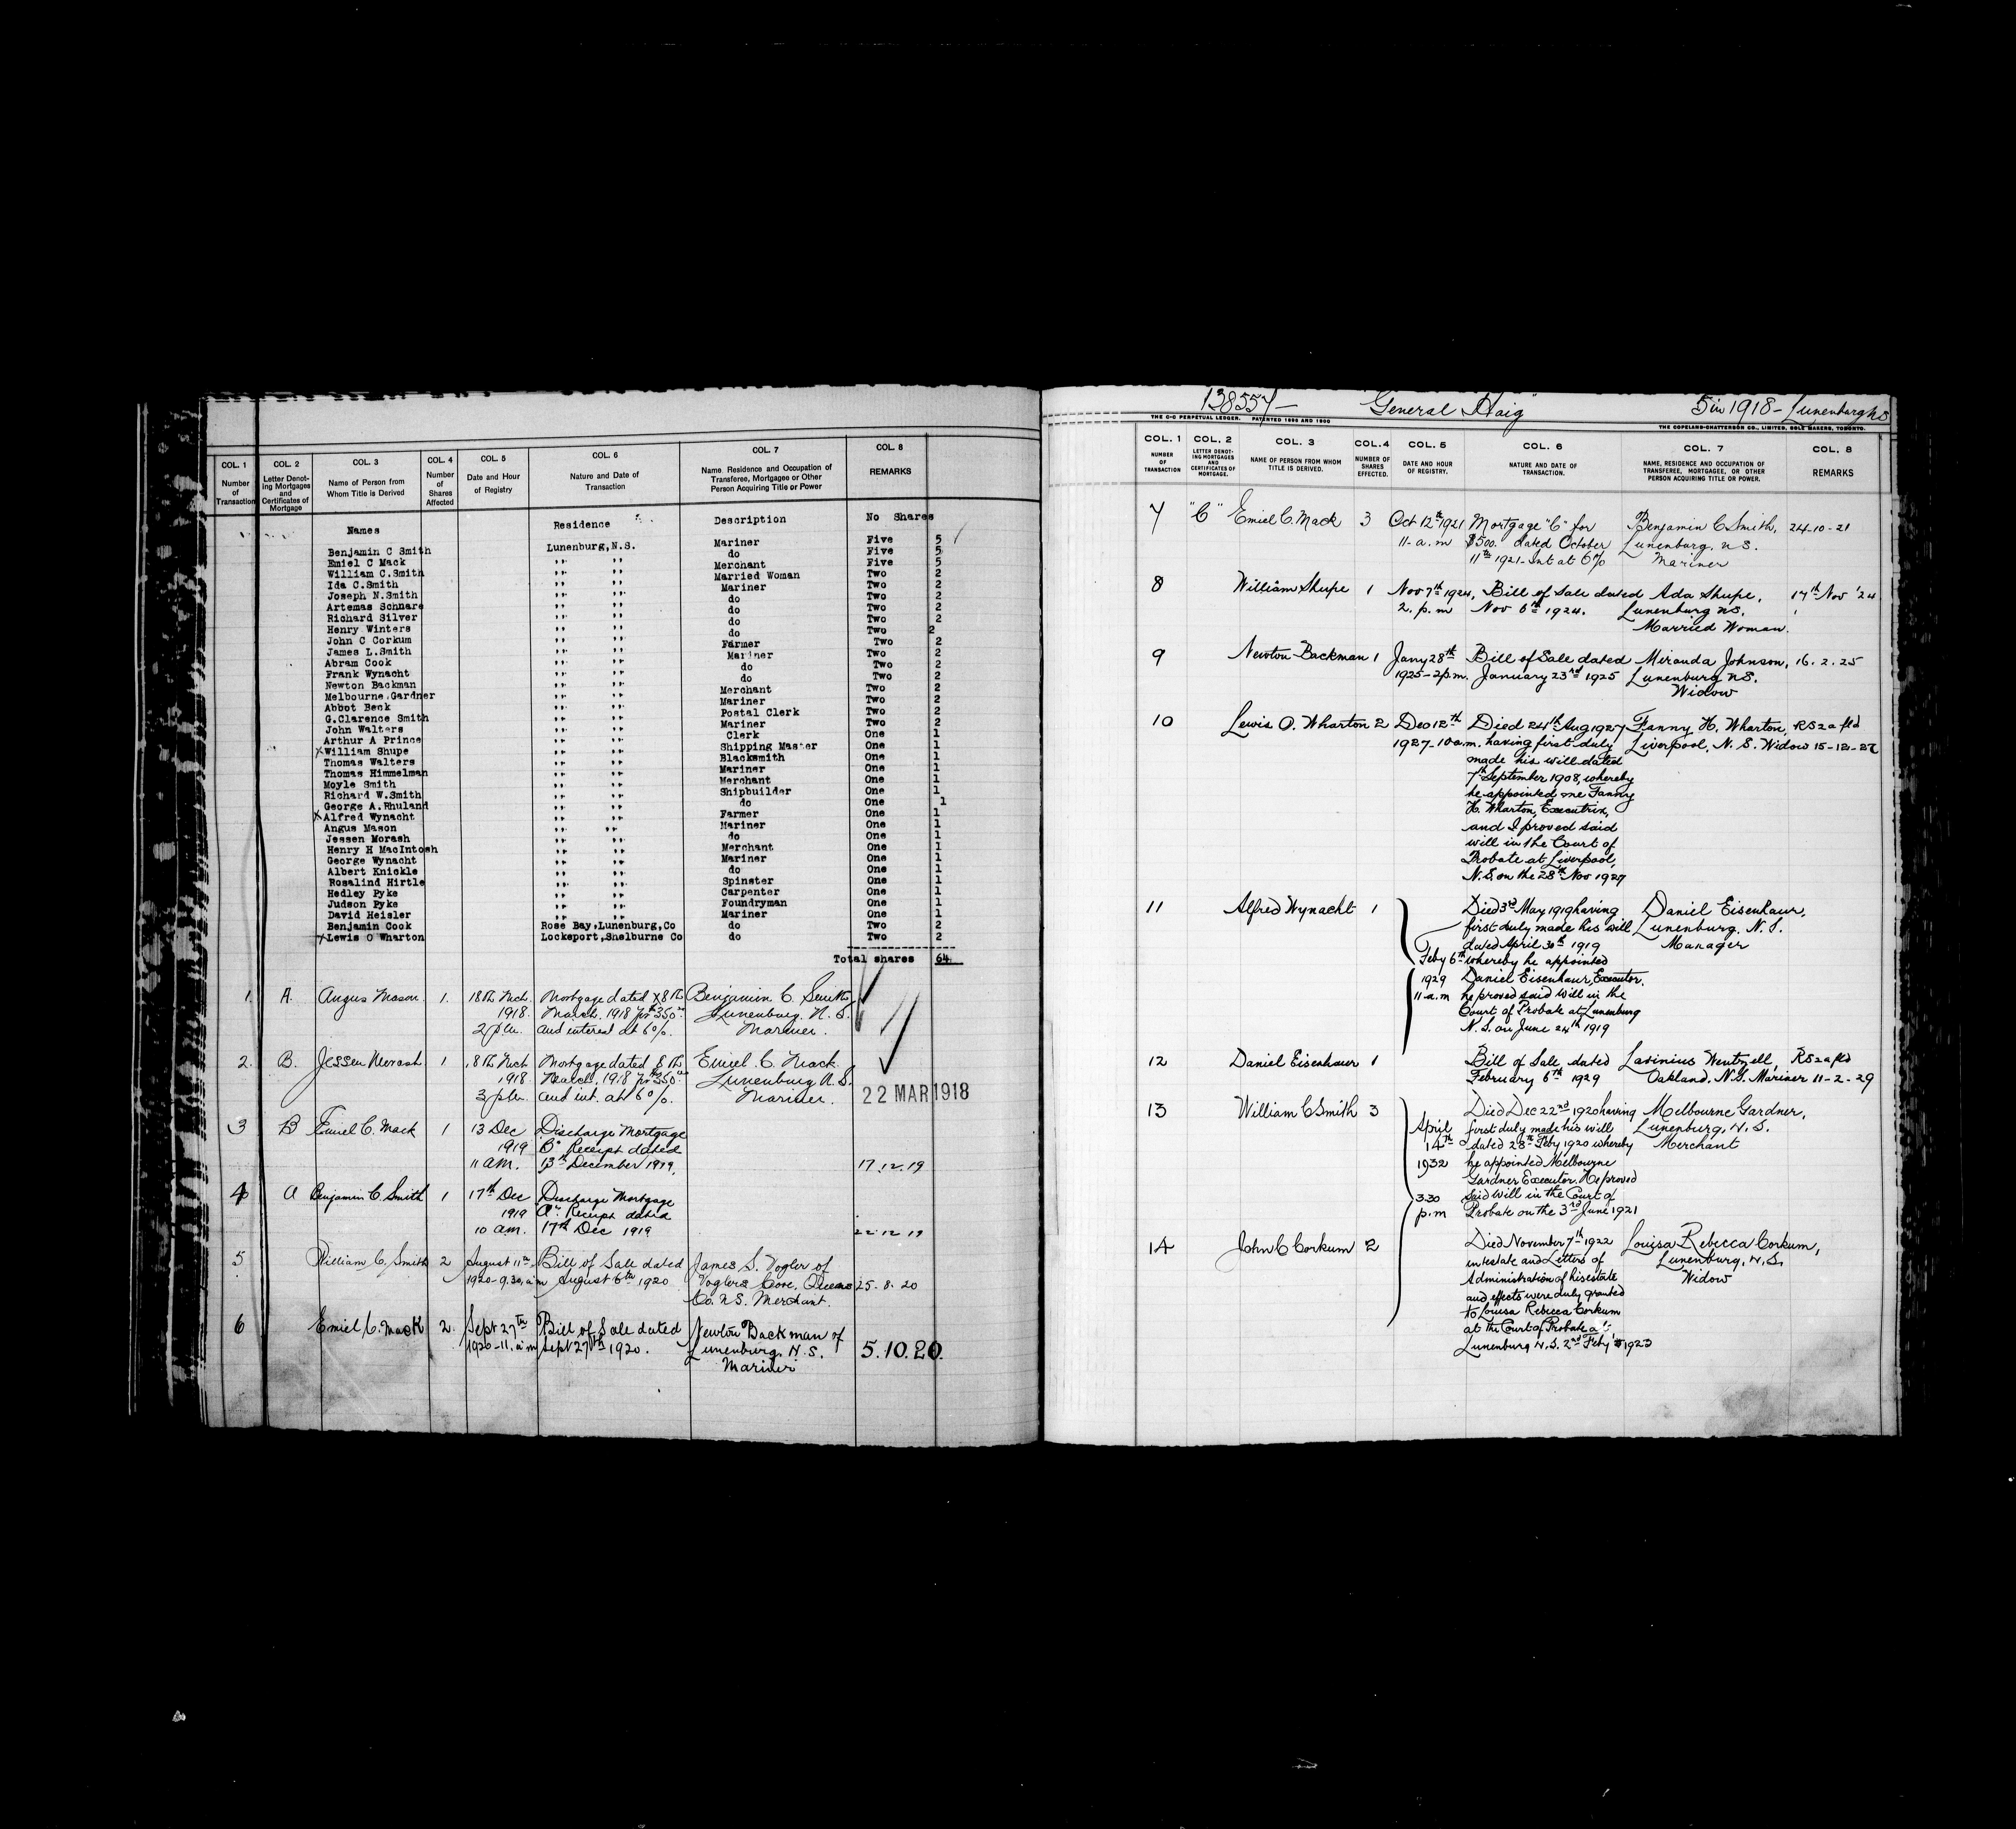 COL. 1 COL. 2 COL. 3 COL. 4 COL. 5 COL. 6 COL. 7 COL. 8
Number of Transaction
Letter Denoting Mortgages and Certificates of Mortgage
Name of Person from Whom Title is Derived
Number of Shares Affected
Date and Hour of Registry
Nature and Date of Transaction
Name, Residence and Occupation of Transferee, Mortgagee or Other Person Acquiring Title or Power
REMARKS
Names Residence Description No Shares
Benjamin C Smith Lunenburg,N.S. Mariner Five 5
Emiel C Mack " " do Five 5
William C.Smith " " Merchant Five 5
Ida C.Smith " " Married Woman Two 2
Joseph N.Smith " " Mariner Two 2
Artemas Schnare " " do Two 2
Richard Silver " " do Two 2
Henry Winters " " do Two 2
John C Corkum " " do Two 2
James L.Smith " " Farmer Two 2
Abram Cook " " Mariner Two 2
Frank Wynacht " " do Two 2
Newton Backman " " do Two 2
Melbourne Gardner " " Merchant Two 2
Abbot Beck " " Mariner Two 2
G.Clarence Smith " " Postal Clerk Two 2
John Walters " " Mariner Two 2
Arthur A Prince " " Clerk One 1
x William Shupe " " Shipping Master One 1
Thomas Walters " " Blacksmith One 1
Thomas Himmelman " " Mariner One 1
Moyle Smith " " Merchant One 1
Richard W.Smith " " Shipbuilder One 1
George A.Rhuland " " do One 1
x Alfred Wynacht " " Farmer One 1
Angus Mason " " Mariner One 1
Jessen Morash " " do One 1
Henry H MacIntosh " " Merchant One 1
George Wynacht " " Mariner One 1
Albert Knickle " " do One 1
Rosalind Hirtle " " Spinster One 1
Hedley Pyke " " Carpenter One 1
Judson Pyke " " Foundryman One 1
David Heisler " " Mariner One 1
Benjamin Cook Rose Bay,Lunenburg,Co do Two 2
x Lewis O Wharton Lockeport,Shelburne Co do Two 2
Total shares 64
1. A. Angus Mason. 1. 18th Mch Mortgage dated 18th Benjamin C. Smith
1918. March. 1918 for $350 Lunenburg. N. S.
2 p.m. and interest at 6%. Mariner.
2. B. Jessen Morash 1 18th Mch Mortgage dated 18th Emiel C. Mack
1918. March, 1918 for $350 Lunenburg N.S.
3 p.m. and int. at 6%. Mariner.
22 MAR 1918
3 B Emiel C. Mack 1 13 Dec Discharge Mortgage
1919 "B" Receipt dated
11 am. 13th December 1919. 17.12.19
4 A Benjamin C. Smith 1 17th Dec Discharge Mortgage
1919 "A". Receipt dated
10 am. 17th Dec 1919 22.12.19
5 William C. Smith 2 August 11th Bill of Sale dated James S. Vogler of
1920-9.30, a.m August 6th 1920 Voglers Cove, Queens 25.8.20
Co. N.S. Merchant.
6 Emiel C. Mack 2 Sept 27th Bill of Sale dated Newton Backman of
1920-11. a.m Sept 27th 1920. Lunenburg, N.S. 5.10.20.
Mariner
138557- General Haig 5 in 1918- Lunenburg NS
THE C-C PERPETUAL LEDGER. PATENTED 1895 AND 1900
THE COPELAND-CHATTERSON CO., LIMITED, SOLE MAKERS, TORONTO.
COL. 1 COL. 2 COL. 3 COL.4 COL. 5 COL. 6 COL. 7 COL. 8
NUMBER OF TRANSACTION
LETTER DENOTING MORTGAGES AND CERTIFICATES OF MORTGAGE.
NAME OF PERSON FROM WHOM TITLE IS DERIVED.
NUMBER OF SHARES EFFECTED.
DATE AND HOUR OF REGISTRY.
NATURE AND DATE OF TRANSACTION.
NAME, RESIDENCE AND OCCUPATION OF TRANSFEREE, MORTGAGEE, OR OTHER PERSON ACQUIRING TITLE OR POWER.
REMARKS
7 "C" Emiel C. Mack 3 Oct 12th 1921 Mortgage "C" for Benjamin C Smith, 24-10-21
11-a.m $500. dated October Lunenburg. N.S.
11th 1921-Int at 6% Mariner
8 William Shupe 1 Nov 7th 1924, Bill of Sale dated Ada Shupe, 17th Nov '24
2. p.m Nov 6th 1924. Lunenburg NS.
Married Woman.
9 Newton Backman 1 Jany 28th Bill of Sale dated Miranda Johnson, 16.2.25
1925-2p.m. January 23rd 1925 Lunenburg N.S.
Widow
10 Lewis O. Wharton 2 Dec 12th Died 24th Aug 1927 Fanny H. Wharton, RS2a fld
1927-10a.m. having first duly Liverpool, N. S. Widow 15-12-27
made his will dated
7th September 1908, whereby
he appointed me Fanny
H. Wharton, Executrix,
and I proved said
will in the Court of
Probate at Liverpool,
N.S. on the 28th Nov 1927
11 Alfred Wynacht 1 Died 3rd May 1919 having Daniel Eisenhaur,
first duly made his will Lunenburg. N.S.
dated April 30th 1919 Manager
Feby 6th whereby he appointed
1929 Daniel Eisenhaur, Executor.
11 a.m he proved said will in the
Court of Probate at Lunenburg
N.S. on June 24th 1919
12 Daniel Eisenhaur 1 Bill of Sale, dated Lavinius Wentzell, RS2a fld
February 6th 1929 Oakland, N.S. Mariner 11-2-29
13 William C Smith 3 Died Dec 22nd 1920 having Melbourne Gardner,
April first duly made his will Lunenburg, N.S.
14th dated 28th Feby 1920 whereby Merchant
1932 he appointed Melbourne
Gardner Executor. He proved
3.30 said will in the Court of
p.m Probate on the 3rd June 1921
14 John C Corkum 2 Died November 7th 1922 Louisa Rebecca Corkum,
intestate and Letters of Lunenburg, N.S.
Administration of his estate Widow
and effects were duly granted
to Louisa Rebecca Corkum
at the Court of Probate at
Lunenburg N.S. 2nd Feby 1923